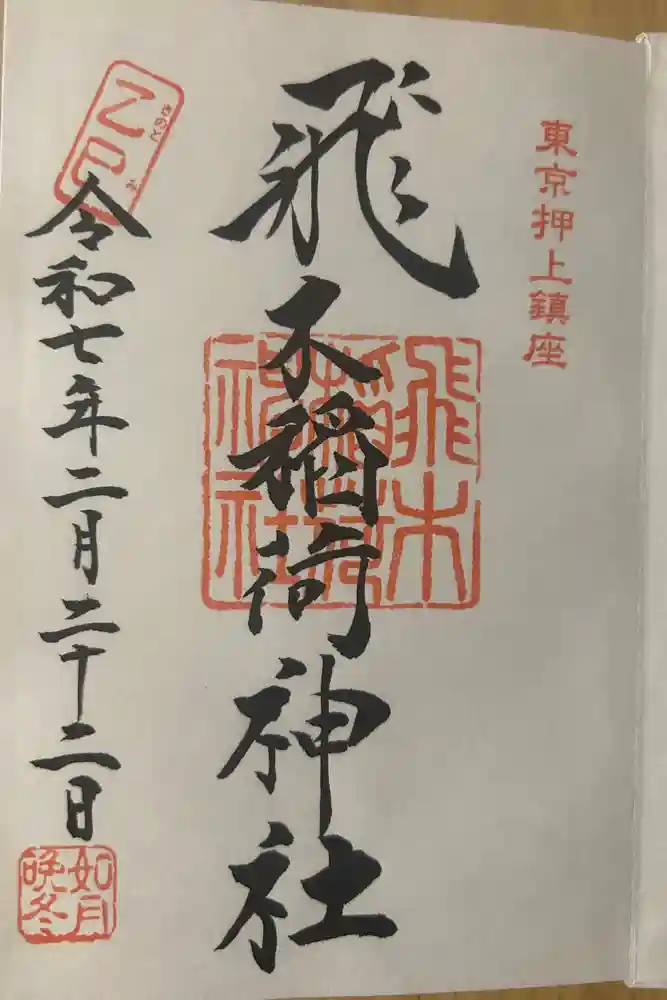 東京押上鎮座
飛木稲荷神社
飛木
稲荷
神社
乙巳
きのと
み
令和七年二月二十二日
如月
晩冬